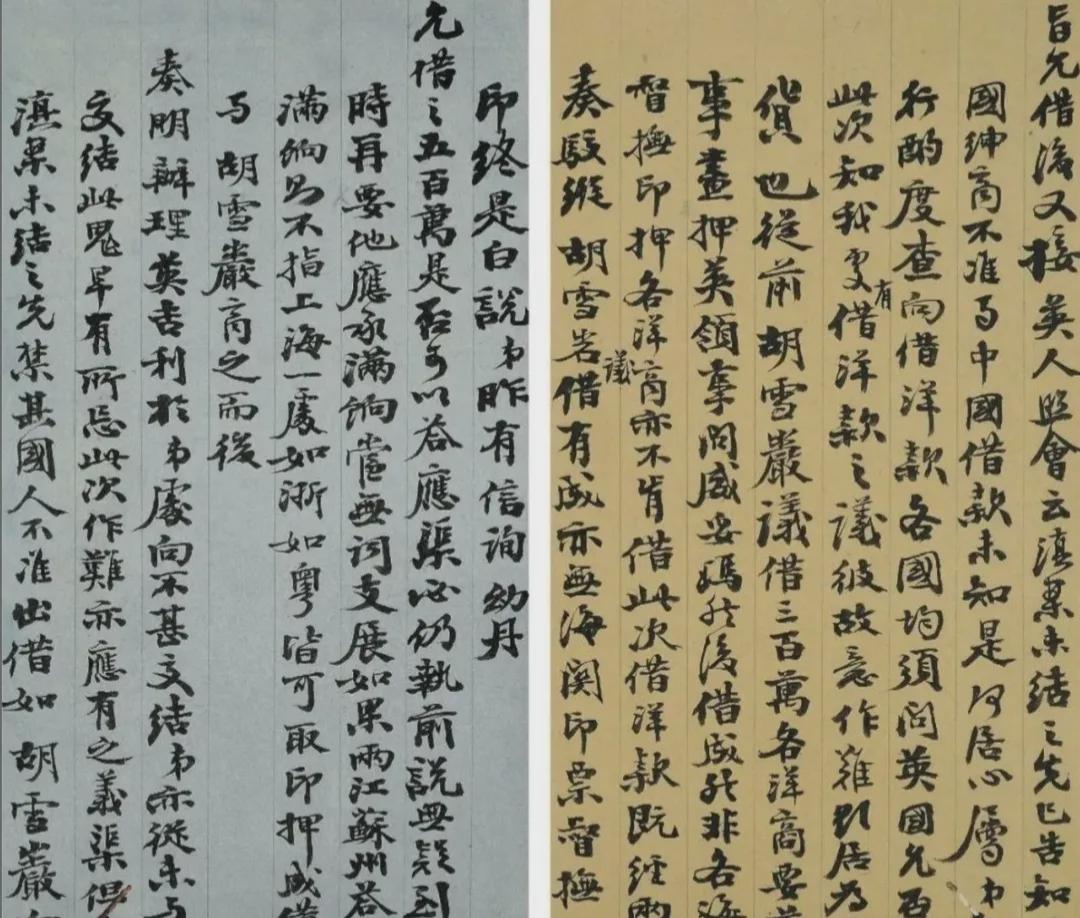 旨允借後又接英人照會云滇案未結之先已告知
國紳商不准与中國借款未知是何居心屬弟
行酌度查向借洋款各國均須問英國允否
此次知我更有借洋款之議彼故意作難居為
貨也從前胡雪巖議借三百萬各洋商要
事畫押英領事問威妥瑪然後借成然非各海
督撫印押各洋商亦不肯借此次借洋款既經兩
奏駁縱胡雪岩借有成議亦無海關印票督撫
印終是白說弟昨有信詢幼丹
允借之五百萬是否可以答應渠必仍執前說無疑到
時再要他應承滿餉當無詞支展如果兩江蘇州答
滿餉即不指上海一處如浙如粵皆可取印押成借
与胡雪巖商之而後
奏明辦理英吉利於弟處向不甚交結弟亦從未与
交結此鬼早有所忌此次作難亦應有之義渠但
滇案未結之先禁其國人不准出借如胡雪巖